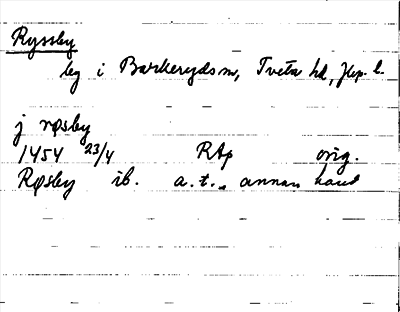 Ryssby
by i Barkerydsn, Tveta hd, Jkp. l.
j røsby
1454 23/4 RAp orig.
Røsby ib. a.t., annan hand